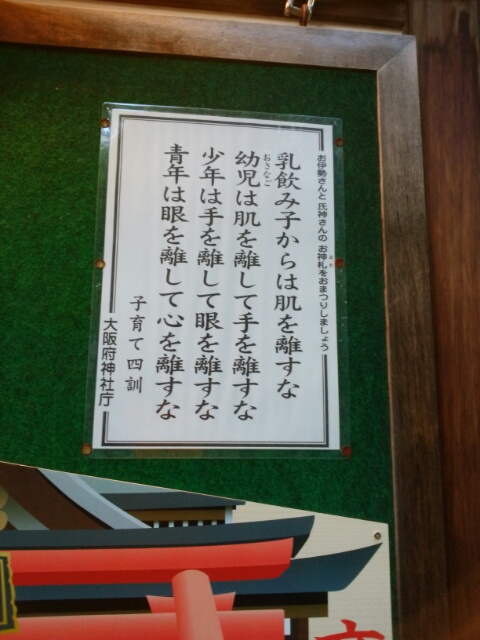 お伊勢さんと氏神さんのお神札をおまつりしましょう
ふだ
乳飲み子からは肌を離すな
おさなご
幼児は肌を離して手を離すな
少年は手を離して眼を離すな
青年は眼を離して心を離すな
子育て四訓
大阪府神社庁